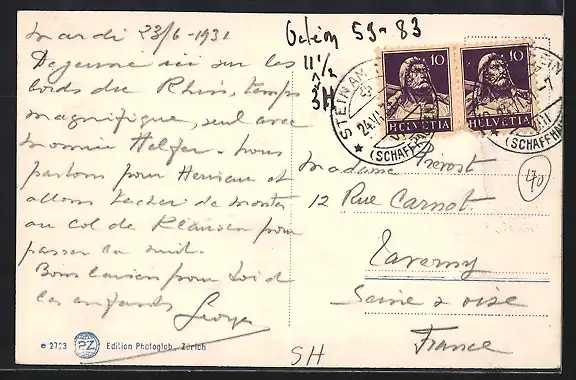 mardi 23/6-1931
Dejeuner ici sur les
bords du Rhin, temps
magnifique, seul avec
monsieur Helfer. nous
partons pour Herisau et
allons tacher de monter
au col de Klausen pour
passer la nuit.
Bons baisers pour toi et
les enfants Georges
e 2723 PZ Edition Photoglob, Zürich
59-83
11 1/2
SH
10 10
HELVETIA HELVETIA
STEIN AM
(SCHAFFH
STEIN
(SCHAFFHA
Madame Prevost
12 Rue Carnot
Taverny
Seine & oise
France
470
SH